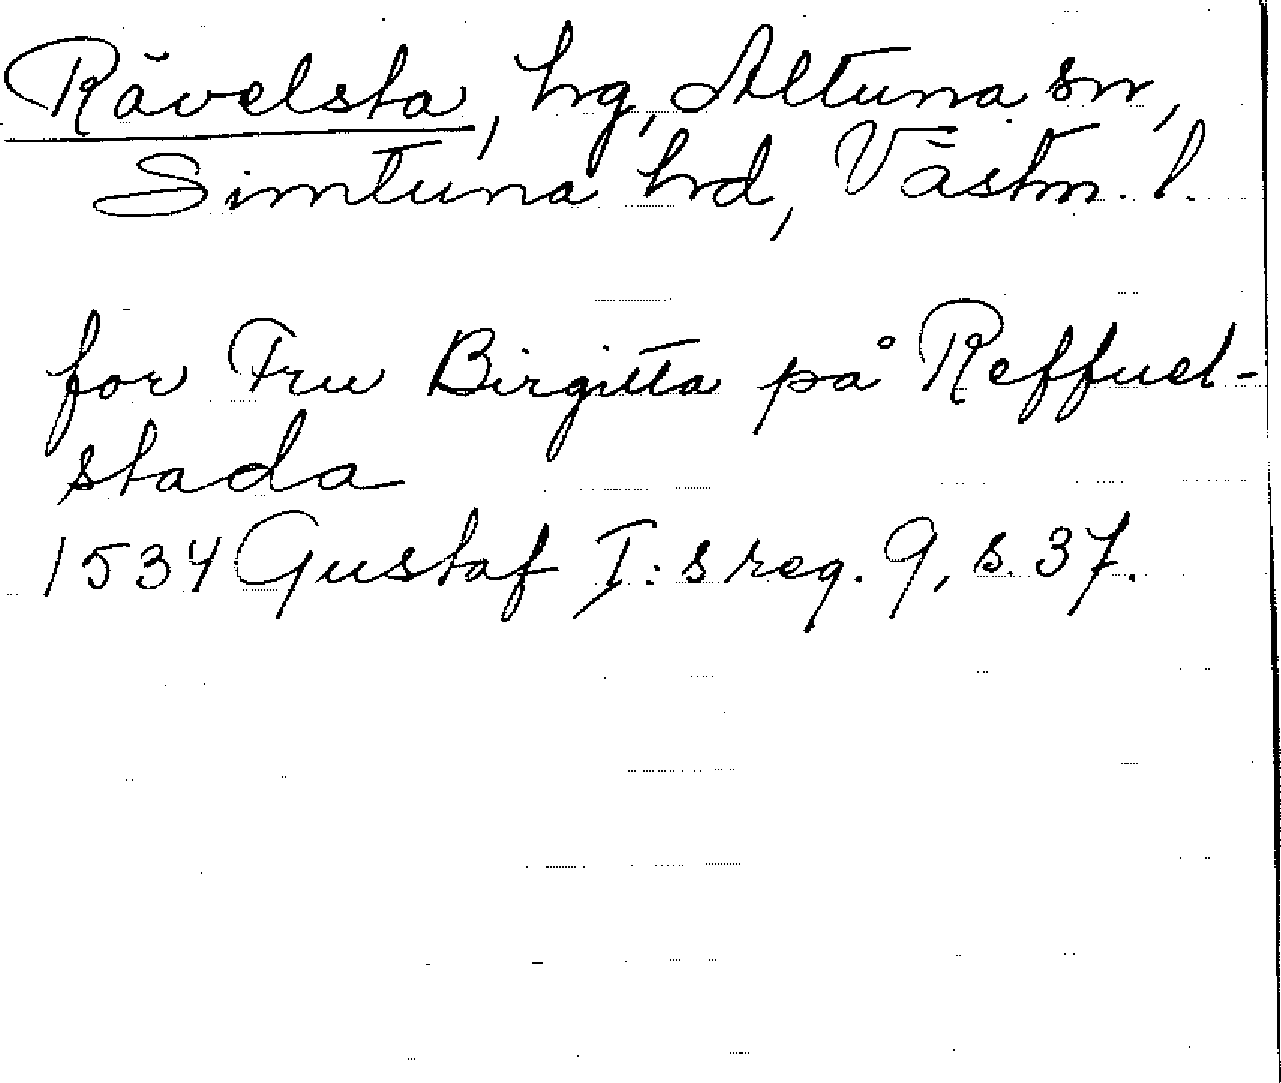 Rävelsta, hg, Altuna sn,
Simtuna hd, Västm. l.
for Fru Birgitta på Reffuel-
stada
1534 Gustaf I:s reg. 9, s. 37.